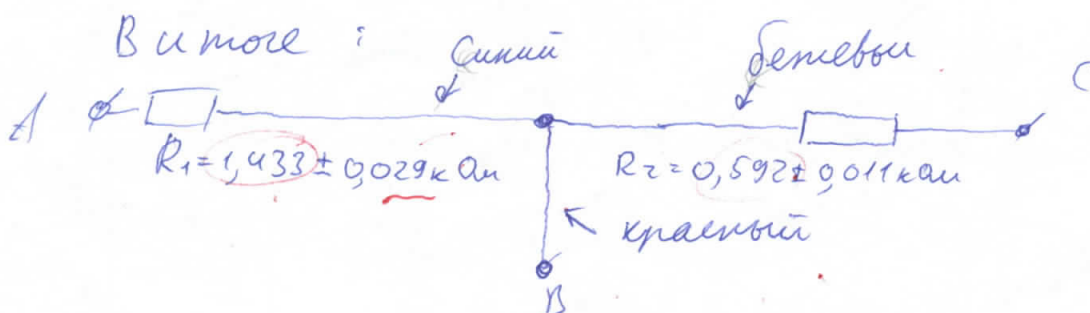 В итоге :
синий
бежевый
A
C
R₁=1,433±0,029кОм
R₂=0,592±0,011кОм
красный
B